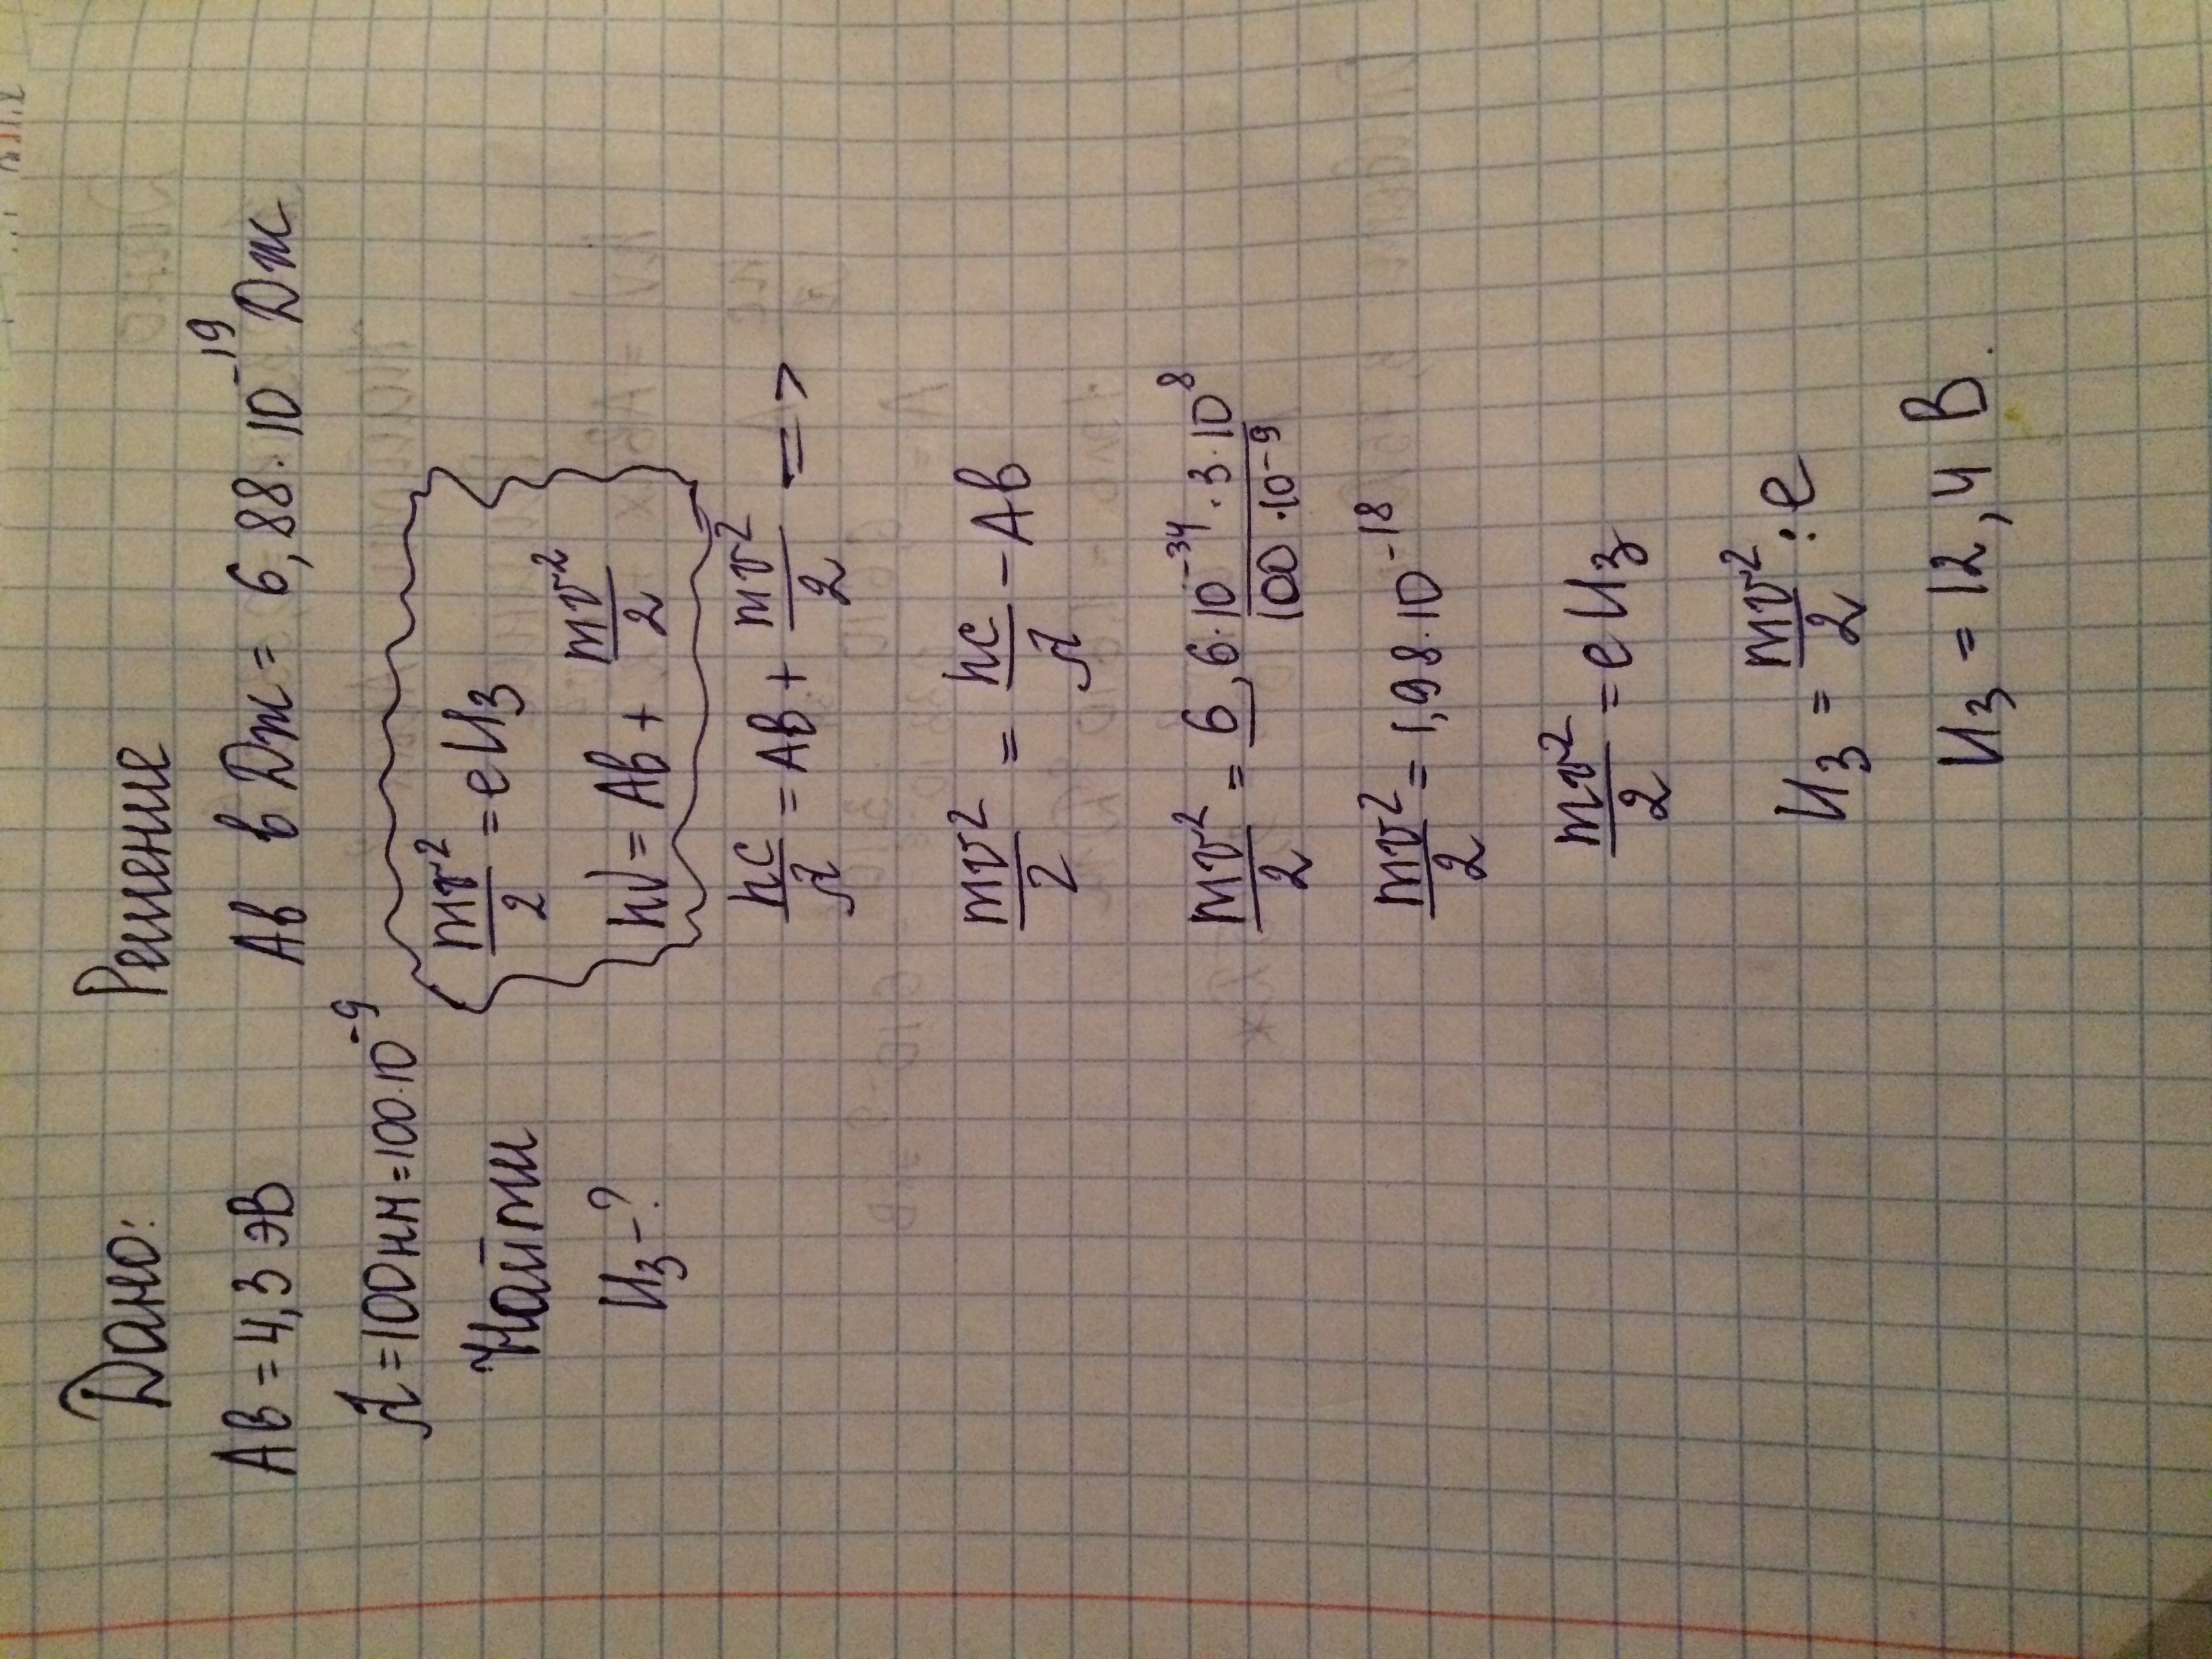 Дано:
Aв = 4,3 эВ
λ = 100нм = 100·10⁻⁹
Найти
Uз - ?
Решение
Aв в Дж = 6,88·10⁻¹⁹ Дж
mv²/2 = eUз
hν = Aв + mv²/2
hc/λ = Aв + mv²/2 =>
mv²/2 = hc/λ - Aв
mv²/2 = 6,6·10⁻³⁴·3·10⁸/100·10⁻⁹
mv²/2 = 1,98·10⁻¹⁸
mv²/2 = eUз
Uз = mv²/2 : e
Uз = 12,4 В.